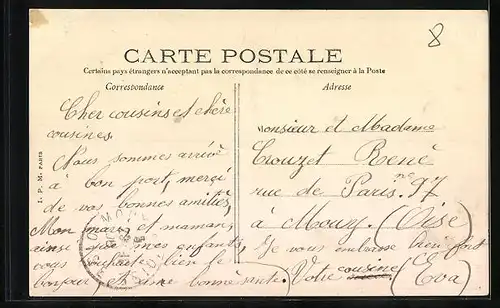 8
CARTE POSTALE
Certains pays étrangers n'acceptant pas la correspondance de ce côté se renseigner à la Poste
Correspondance
Adresse
I. P. M. PARIS
Cher cousins et chère
cousines.
Nous sommes arrivé
à bon port, merçi
de vos bonnes amitiés,
Mon mari, et maman,
ainse que mes enfants,
vous souhaite bien le
bonjour, et une bonne santé.
Monsieur et Madame
Crouzet René
rue de Paris nº 97
à Mouy. (Oise)
Je vous embrasse bien fort
Votre cousine
(Eva)